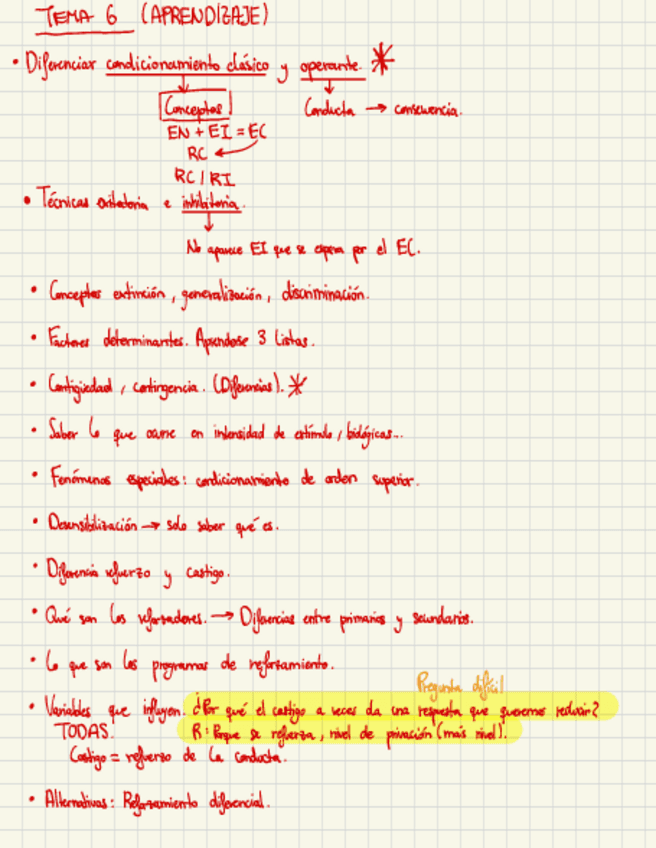 TEMA 6 (APRENDIZAJE)
• Diferenciar condicionamiento clásico y operante. *
Conceptos
Conducta → consecuencia.
EN + EI = EC
RC ←
RC / RI
• Técnicas exitatoria e inhibitoria.
No aparece EI que se espera por el EC.
• Conceptos extinción, generalización, discriminación.
• Factores determinantes. Aprendose 3 listas.
• Contigüedad, contingencia. (Diferencias). *
• Saber lo que ocurre en intensidad de estímulo, biológicas...
• Fenómenos especiales: condicionamiento de orden superior.
• Desensibilización → solo saber qué es.
• Diferencia refuerzo y castigo.
• Qué son los reforzadores. → Diferencias entre primarios y secundarios.
• Lo que son los programas de reforzamiento.
Pregunta difícil
• Variables que influyen. ¿Por qué el castigo a veces da una respuesta que queremos reducir?
TODAS. R: Porque se refuerza, nivel de privación (más nivel).
Castigo = refuerzo de la conducta.
• Alternativas: Reforzamiento diferencial.